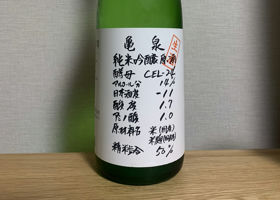 亀泉
純米吟醸原酒
生酒
酵母 CEL-24
アルコール分 14%
日本酒度 -11
酸度 1.7
アミノ酸 1.0
原材料名 米(国産)
米麹(国産米)
精米歩合 50%